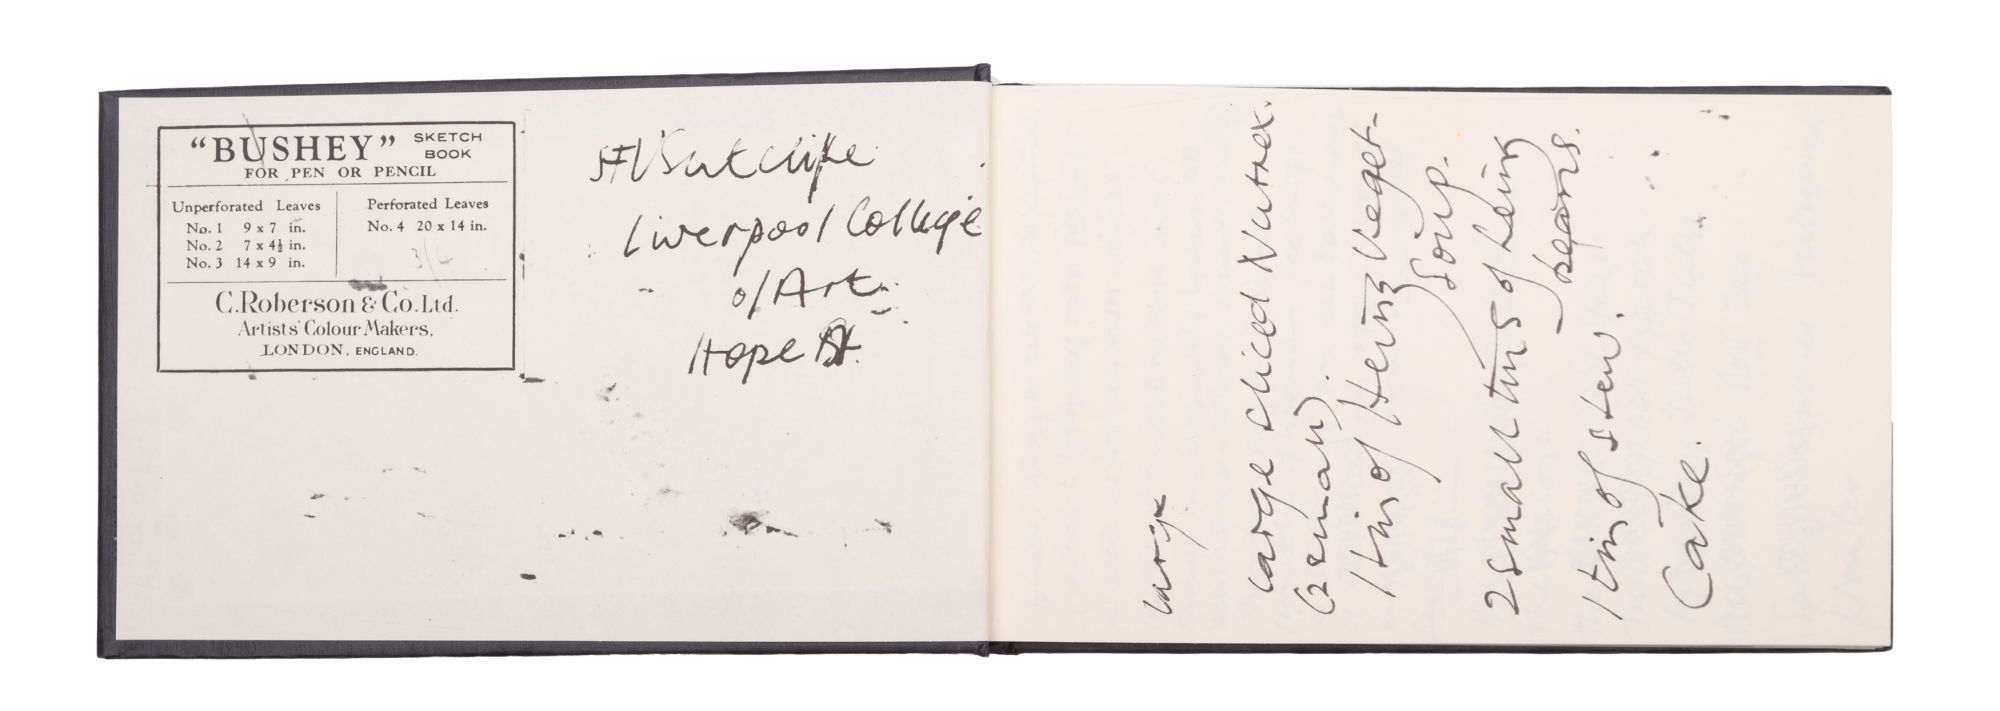 “BUSHEY” SKETCH BOOK
FOR PEN OR PENCIL
Unperforated Leaves
No. 1 9 x 7 in.
No. 2 7 x 4½ in.
No. 3 14 x 9 in.
Perforated Leaves
No. 4 20 x 14 in.
C. Roberson & Co. Ltd.
Artists' Colour Makers,
LONDON, ENGLAND.
Sutcliffe
Liverpool College
of Art.
Hope St.
large
large sliced Nutrex.
(2 small).
1 tin of Heinz Veget-
Soup.
2 small tins of Heinz
beans.
1 tin of stew.
Cake.